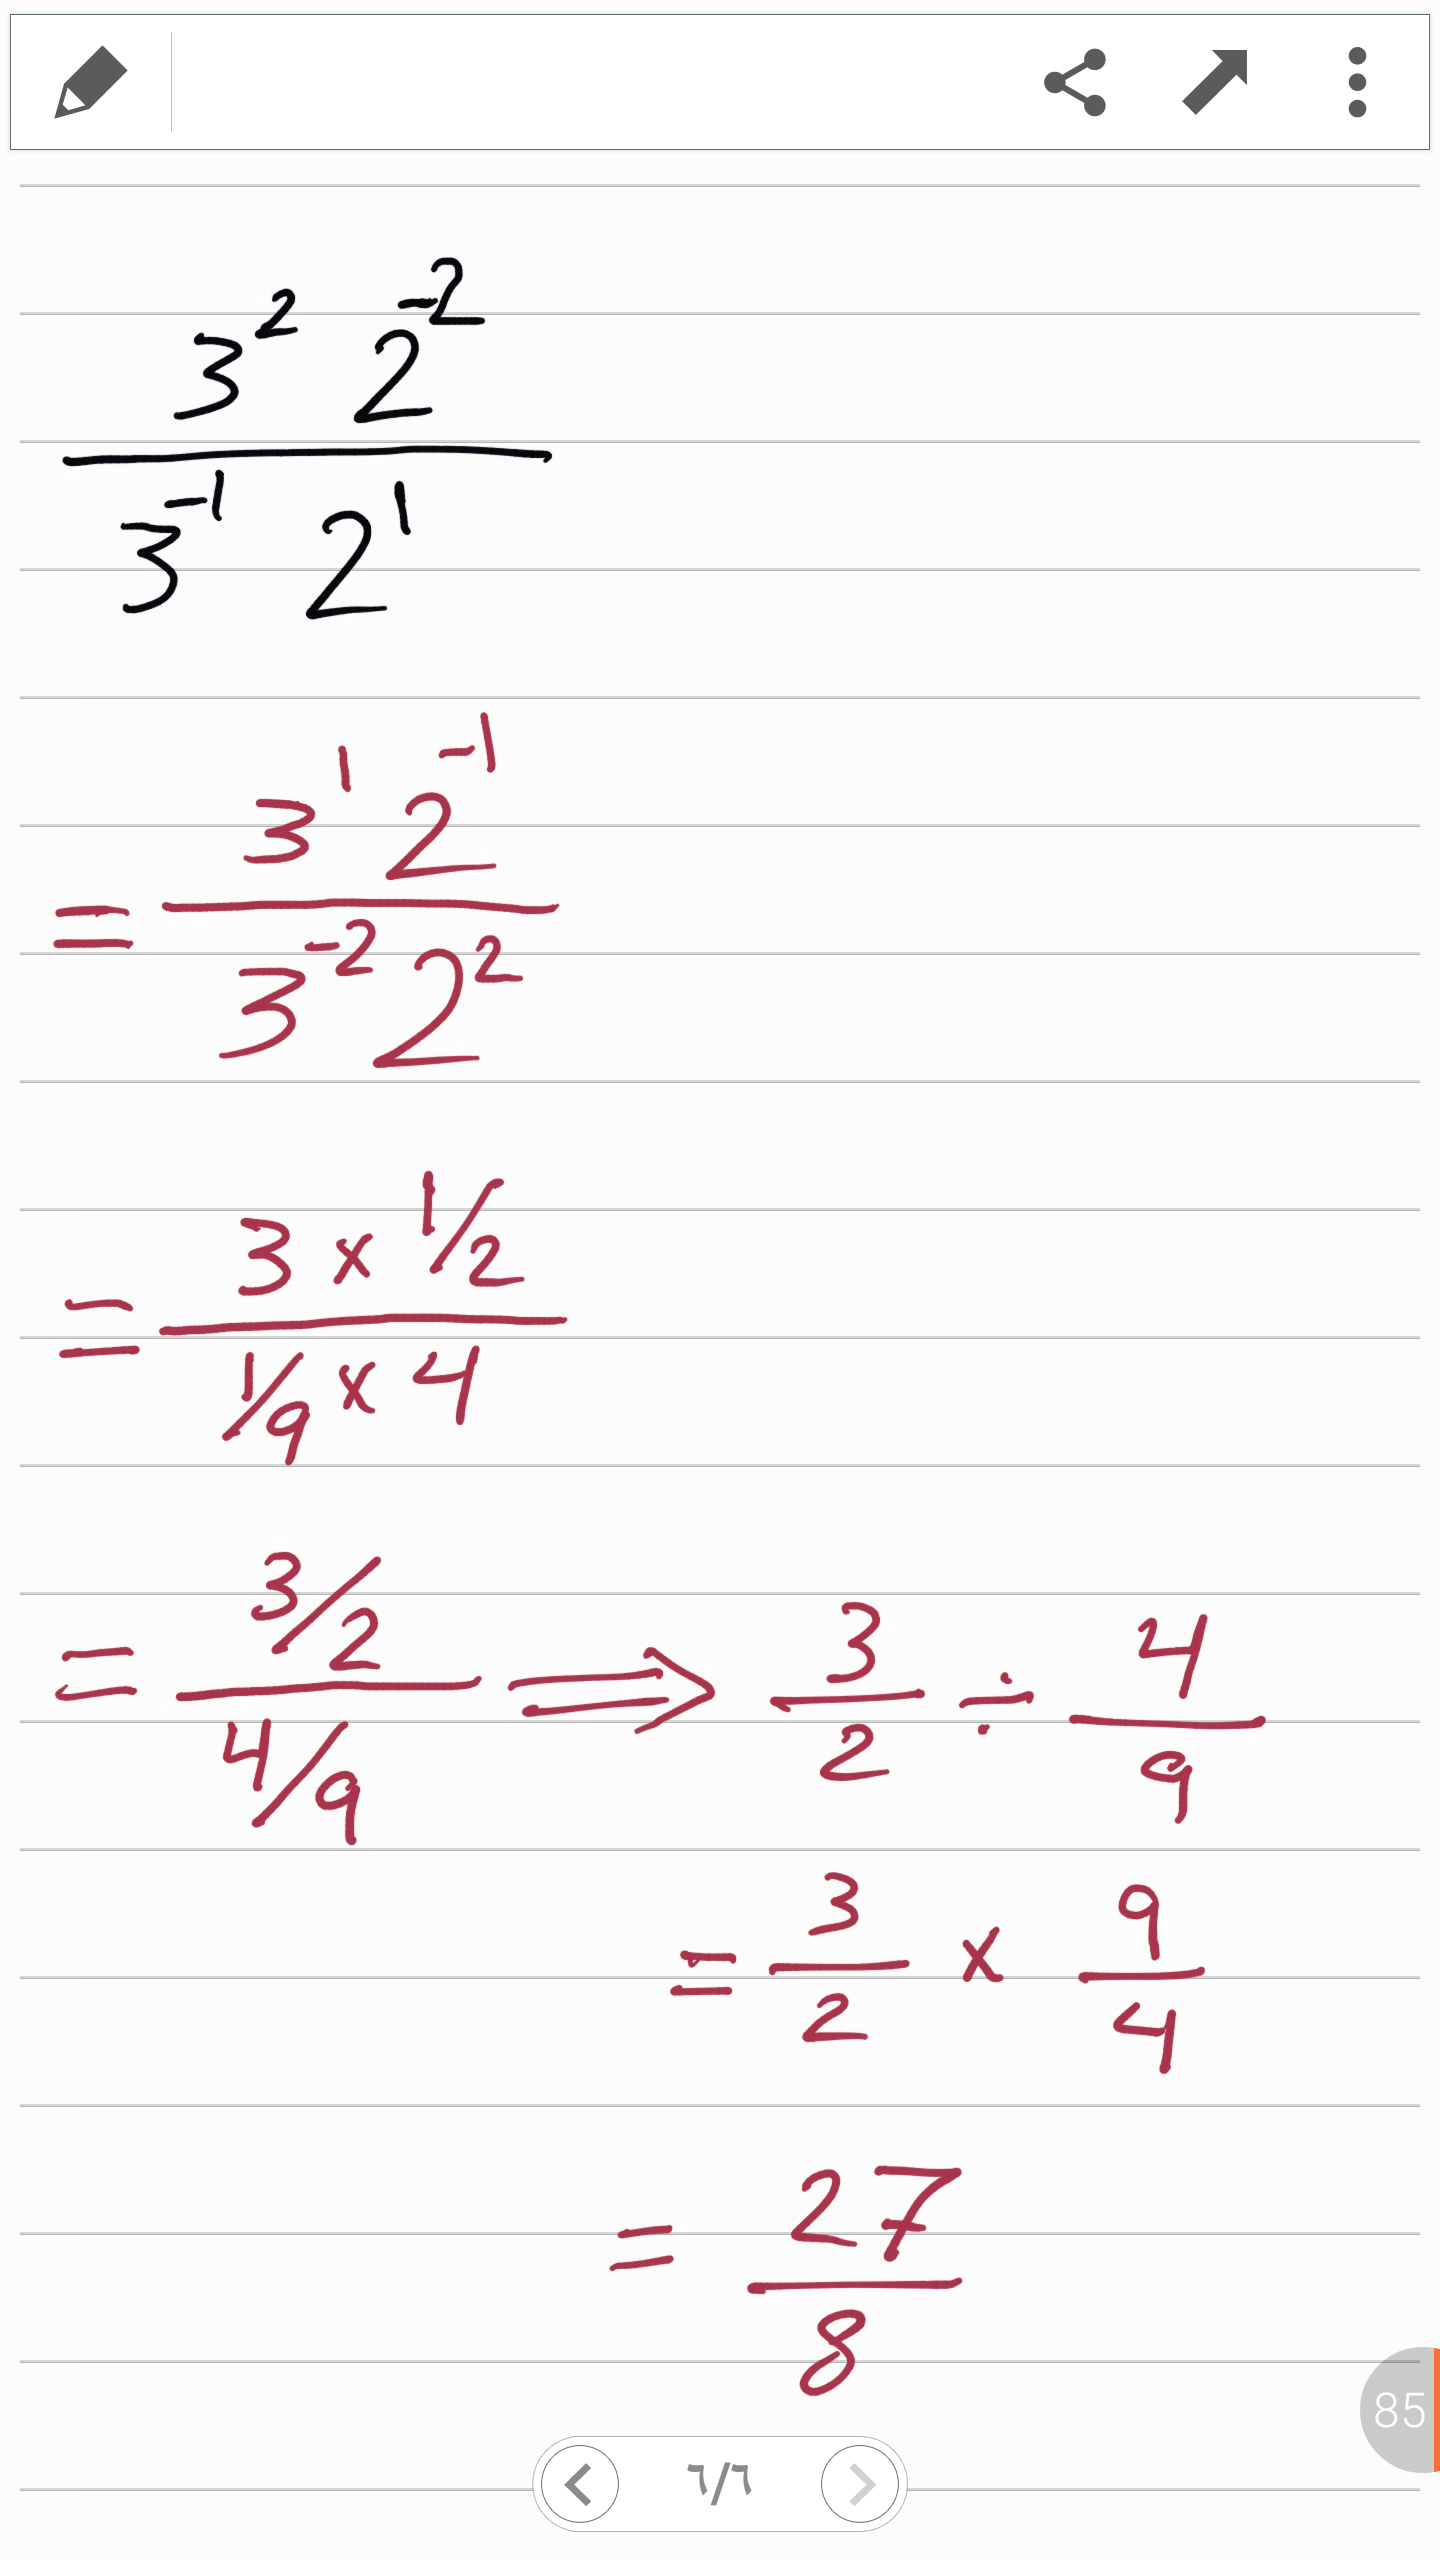 3² 2⁻²
3⁻¹ 2¹
= 3¹ 2⁻¹
3⁻² 2²
= 3 × 1/2
1/9 × 4
= 3/2
4/9
⇒ 3/2 ÷ 4/9
= 3/2 × 9/4
= 27/8
85
٦/٦